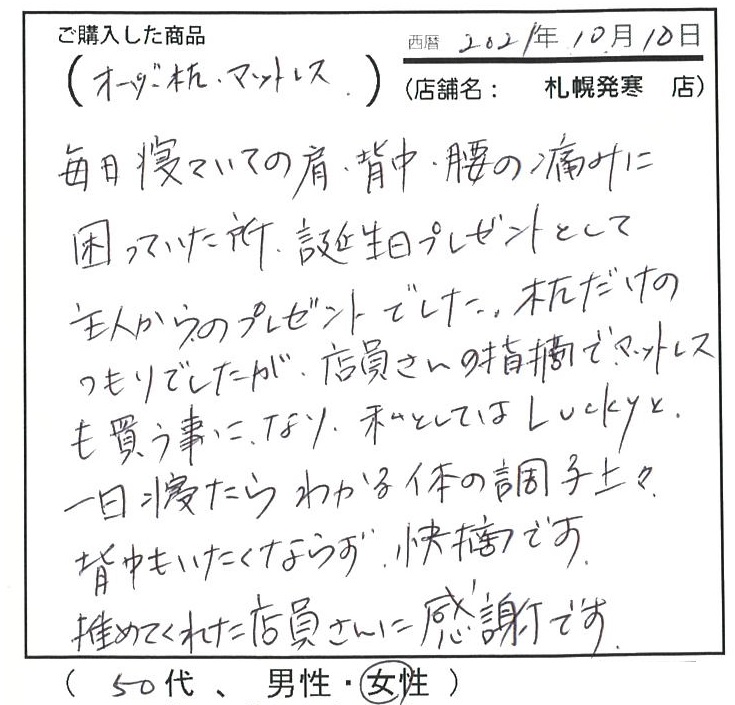 ご購入した商品
西暦 2021年 10月 10日
(オーダー枕・マットレス)
(店舗名: 札幌発寒 店)
毎日寝ていての肩・背中・腰の痛みに
困っていた所、誕生日プレゼントとして
主人からのプレゼントでした。枕だけの
つもりでしたが、店員さんの指摘でマットレス
も買う事に、なり、私としてはLuckyと、
一日寝たらわかる体の調子上々
背中もいたくならず、快摘です。
推めてくれた店員さんに感謝です。
( 50代 、 男性・女性 )